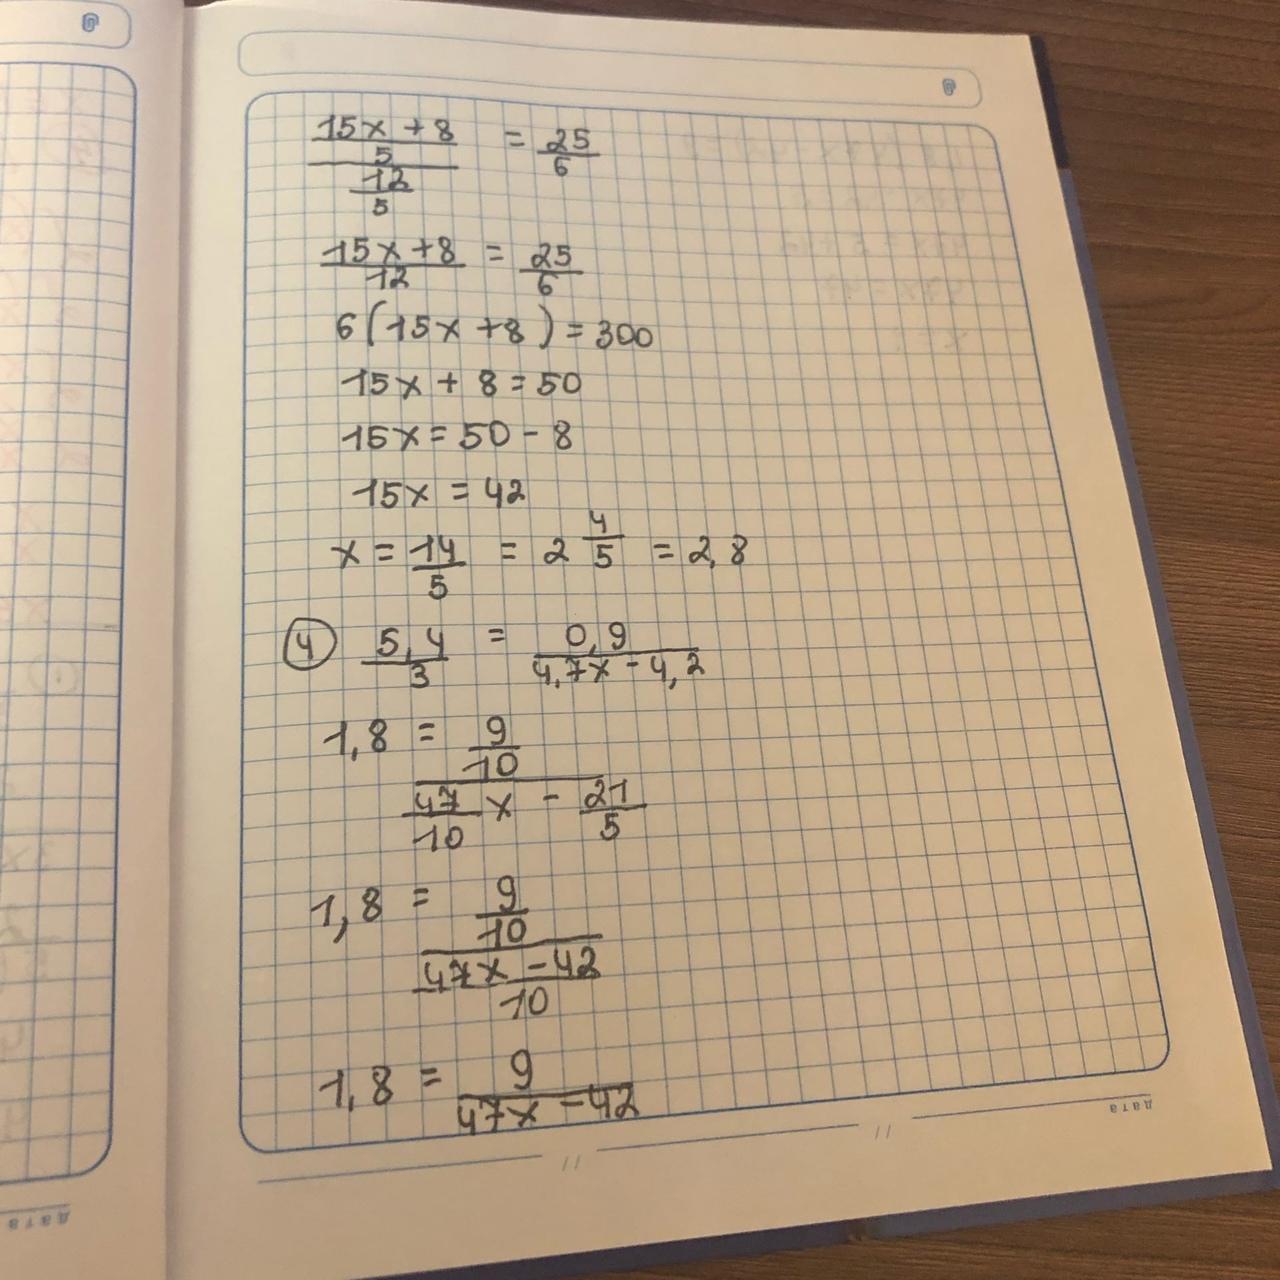 ((15x + 8)/5)/(12/5) = 25/6
(15x + 8)/12 = 25/6
6(15x + 8) = 300
15x + 8 = 50
15x = 50 - 8
15x = 42
x = 14/5 = 2 4/5 = 2,8
④ 5,4/3 = 0,9/(4,7x - 4,2)
1,8 = (9/10)/(47/10 x - 21/5)
1,8 = (9/10)/((47x - 42)/10)
1,8 = 9/(47x - 42)
дата
дата